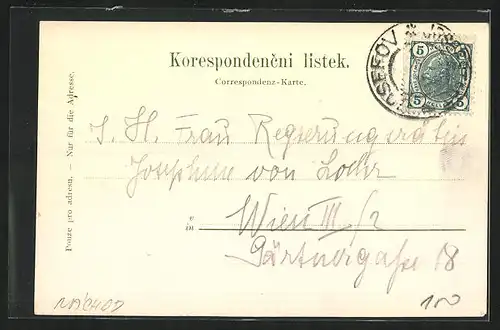 Korespondenčni listek.
Correspondenz-Karte.
JOSEFOV
5
5
Pouze pro adresu. — Nur für die Adresse.
I. H. Frau Regierungsrätin
Josephine von Lohr
v
in
Wien III/2
Gärtnergasse 18
NÁCHOD
100